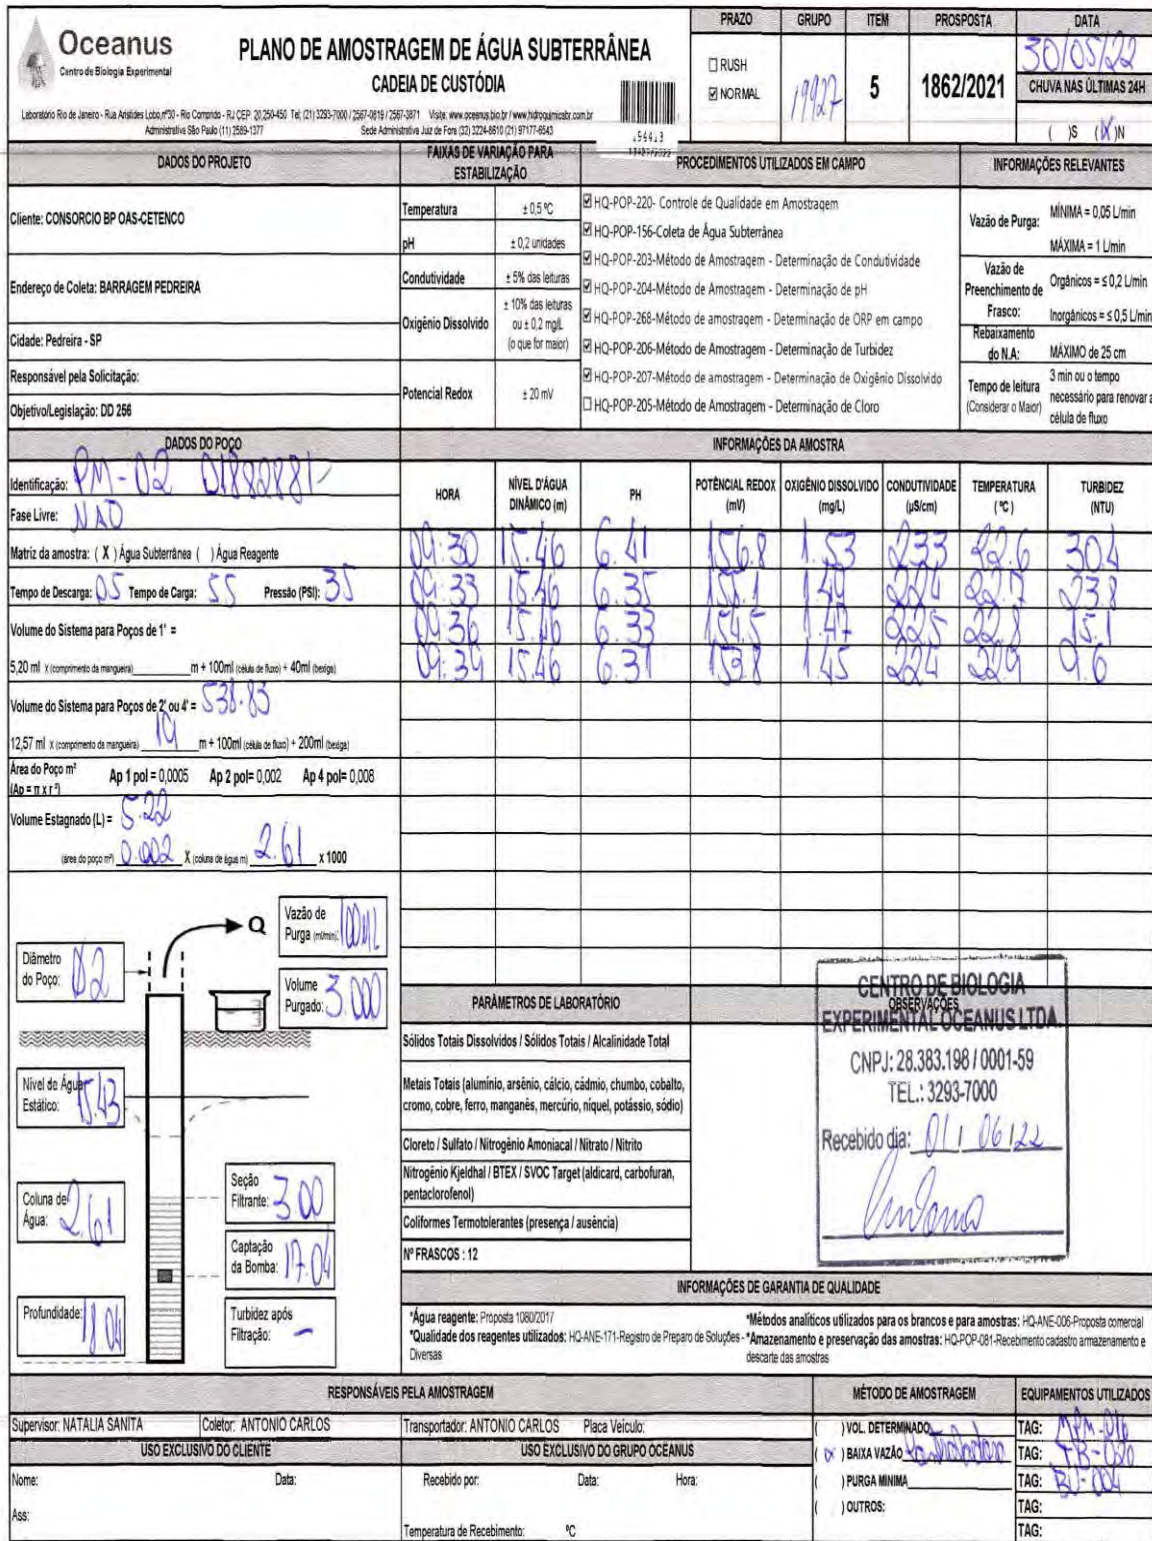 Oceanus
Centro de Biologia Experimental
PLANO DE AMOSTRAGEM DE ÁGUA SUBTERRÂNEA
CADEIA DE CUSTÓDIA
Laboratório Rio de Janeiro - Rua Aristides Lobo, nº30 - Rio Comprido - RJ CEP 20.250-450 Tel: (21) 3293-7000 / 2567-0819 / 2567-3871 Visite: www.oceanus.bio.br / www.hidroquimicabr.com.br
Administrativa São Paulo (11) 2589-1377 Sede Administrativa Juiz de Fora (32) 3224-8610 (21) 97177-6543
PRAZO GRUPO ITEM PROSPOSTA DATA
☐ RUSH
☑ NORMAL
19927 5 1862/2021 30/05/22
CHUVA NAS ÚLTIMAS 24H
( )S (X)N
DADOS DO PROJETO
Cliente: CONSORCIO BP OAS-CETENCO
Endereço de Coleta: BARRAGEM PEDREIRA
Cidade: Pedreira - SP
Responsável pela Solicitação:
Objetivo/Legislação: DD 256
FAIXAS DE VARIAÇÃO PARA ESTABILIZAÇÃO
Temperatura ± 0,5 ºC
pH ± 0,2 unidades
Condutividade ± 5% das leituras
Oxigênio Dissolvido ± 10% das leituras ou ± 0,2 mg/L (o que for maior)
Potencial Redox ± 20 mV
PROCEDIMENTOS UTILIZADOS EM CAMPO
☑ HQ-POP-220- Controle de Qualidade em Amostragem
☑ HQ-POP-156-Coleta de Água Subterrânea
☑ HQ-POP-203-Método de Amostragem - Determinação de Condutividade
☑ HQ-POP-204-Método de Amostragem - Determinação de pH
☑ HQ-POP-268-Método de amostragem - Determinação de ORP em campo
☑ HQ-POP-206-Método de Amostragem - Determinação de Turbidez
☑ HQ-POP-207-Método de amostragem - Determinação de Oxigênio Dissolvido
☐ HQ-POP-205-Método de Amostragem - Determinação de Cloro
INFORMAÇÕES RELEVANTES
Vazão de Purga: MÍNIMA = 0,05 L/min
MÁXIMA = 1 L/min
Vazão de Preenchimento de Frasco: Orgânicos = ≤ 0,2 L/min
Inorgânicos = ≤ 0,5 L/min
Rebaixamento do N.A: MÁXIMO de 25 cm
Tempo de leitura (Considerar o Maior) 3 min ou o tempo necessário para renovar a célula de fluxo
DADOS DO POÇO
Identificação: PM-02 01882881
Fase Livre: NAO
Matriz da amostra: ( X ) Água Subterrânea ( ) Água Reagente
Tempo de Descarga: 05 Tempo de Carga: 55 Pressão (PSI): 35
Volume do Sistema para Poços de 1" =
5,20 ml x (comprimento da mangueira) ______ m + 100ml (célula de fluxo) + 40ml (bexiga)
Volume do Sistema para Poços de 2" ou 4" = 538.83
12,57 ml x (comprimento da mangueira) 19 m + 100ml (célula de fluxo) + 200ml (bexiga)
Área do Poço m² (Ap = π x r²) Ap 1 pol = 0,0005 Ap 2 pol= 0,002 Ap 4 pol= 0,008
Volume Estagnado (L) = 5.22
(área do poço m²) 0.002 X (coluna de água m) 2.61 x 1000
INFORMAÇÕES DA AMOSTRA
HORA NÍVEL D'ÁGUA DINÂMICO (m) PH POTÊNCIAL REDOX (mV) OXIGÊNIO DISSOLVIDO (mg/L) CONDUTIVIDADE (µS/cm) TEMPERATURA (ºC) TURBIDEZ (NTU)
09:30 15.46 6.41 156.8 1.53 233 22.6 30.4
09:33 15.46 6.35 155.1 1.49 224 22.7 23.8
09:36 15.46 6.33 154.5 1.47 225 22.8 15.1
09:39 15.46 6.31 153.8 1.45 224 22.9 9.6
Q
Vazão de Purga (ml/min): 100mL
Diâmetro do Poço: 02
Volume Purgado: 3.000
Nível de Água Estático: 15.43
Coluna de Água: 2.61
Seção Filtrante: 3.00
Captação da Bomba: 17.04
Profundidade: 18.04
Turbidez após Filtração: -
PARÂMETROS DE LABORATÓRIO
Sólidos Totais Dissolvidos / Sólidos Totais / Alcalinidade Total
Metais Totais (alumínio, arsênio, cálcio, cádmio, chumbo, cobalto, cromo, cobre, ferro, manganês, mercúrio, níquel, potássio, sódio)
Cloreto / Sulfato / Nitrogênio Amoniacal / Nitrato / Nitrito
Nitrogênio Kjeldhal / BTEX / SVOC Target (aldicard, carbofuran, pentaclorofenol)
Coliformes Termotolerantes (presença / ausência)
Nº FRASCOS : 12
OBSERVAÇÕES
CENTRO DE BIOLOGIA
EXPERIMENTAL OCEANUS LTDA.
CNPJ: 28.383.198 / 0001-59
TEL.: 3293-7000
Recebido dia: 01 / 06 / 22
INFORMAÇÕES DE GARANTIA DE QUALIDADE
*Água reagente: Proposta 1080/2017
*Qualidade dos reagentes utilizados: HQ-ANE-171-Registro de Preparo de Soluções - Diversas
*Métodos analíticos utilizados para os brancos e para amostras: HQ-ANE-006-Proposta comercial
*Amazenamento e preservação das amostras: HQ-POP-081-Recebimento cadastro armazenamento e descarte das amostras
RESPONSÁVEIS PELA AMOSTRAGEM
Supervisor: NATALIA SANITA Coletor: ANTONIO CARLOS Transportador: ANTONIO CARLOS Placa Veículo:
USO EXCLUSIVO DO CLIENTE
Nome: Data:
Ass:
USO EXCLUSIVO DO GRUPO OCEANUS
Recebido por: Data: Hora:
Temperatura de Recebimento: ºC
MÉTODO DE AMOSTRAGEM
( ) VOL. DETERMINADO
( X ) BAIXA VAZÃO
( ) PURGA MINIMA
( ) OUTROS:
EQUIPAMENTOS UTILIZADOS
TAG: MPM-016
TAG: TB-020
TAG: BU-004
TAG:
TAG: